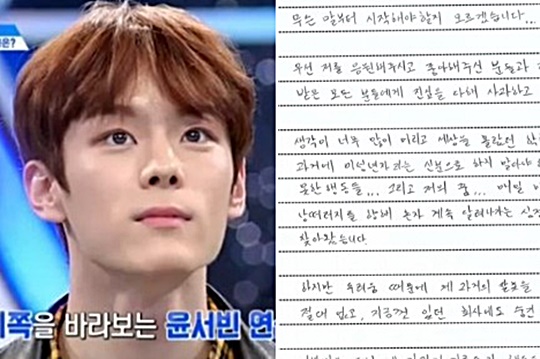 은?
이쪽을 바라보는 윤서빈 연
무슨 말부터 시작해야할지 모르겠습니다...
우선 저를 응원해주시고 좋아해주신 분들과
받은 모든 분들에게 진심을 다해 사과하고
생각이 너무 많이 어리고 세상을 몰랐던
과거에 미성년자라는 신분으로 하지 말아야
못한 행동들... 그리고 저의 꿈... 매일
낭떠러지를 향해 혼자 계속 달려나가는 심정
찾아왔습니다.
하지만 두려움 때문에 제 과거의 잘못을
절대 없고, 지금껏 있던 회사에도 숨긴